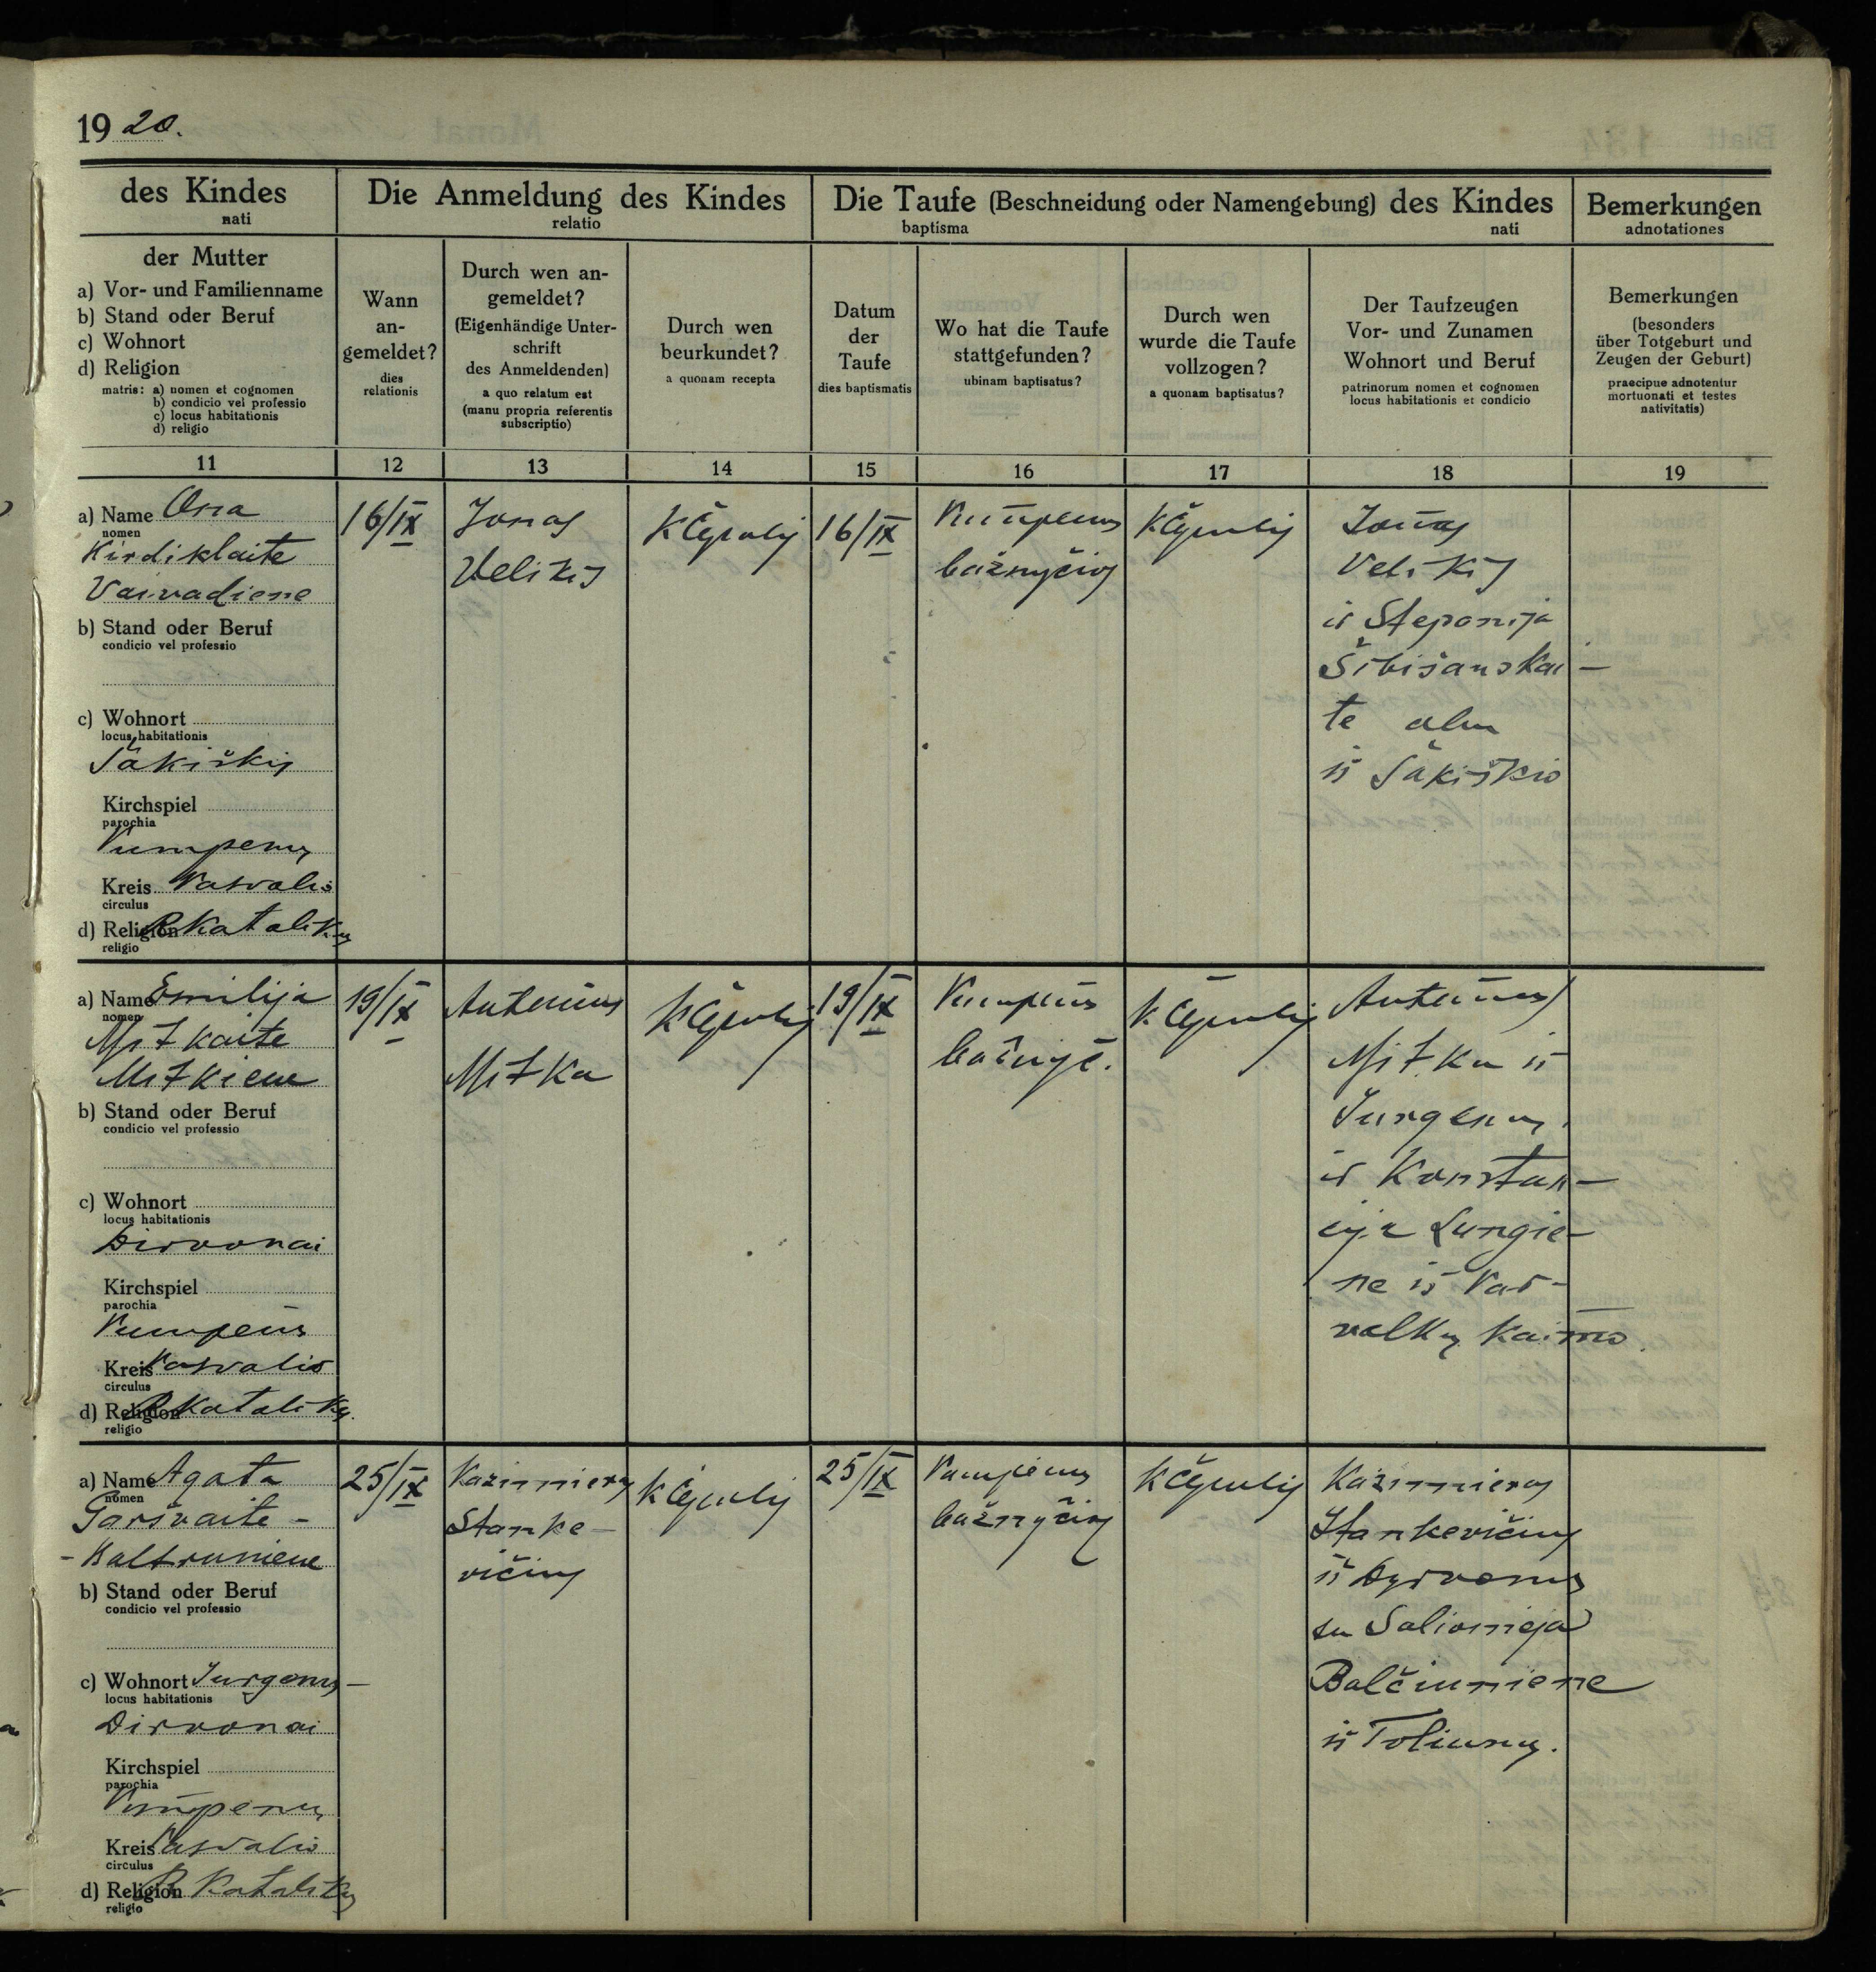 1920.
des Kindes
nati
Die Anmeldung des Kindes
relatio
Die Taufe (Beschneidung oder Namengebung) des Kindes
baptisma nati
Bemerkungen
adnotationes
der Mutter
a) Vor- und Familienname
b) Stand oder Beruf
c) Wohnort
d) Religion
matris: a) nomen et cognomen
b) condicio vel professio
c) locus habitationis
d) religio
Wann
an-
gemeldet?
dies
relationis
Durch wen an-
gemeldet?
(Eigenhändige Unter-
schrift
des Anmeldenden)
a quo relatum est
(manu propria referentis
subscriptio)
Durch wen
beurkundet?
a quonam recepta
Datum
der
Taufe
dies baptismatis
Wo hat die Taufe
stattgefunden?
ubinam baptisatus?
Durch wen
wurde die Taufe
vollzogen?
a quonam baptisatus?
Der Taufzeugen
Vor- und Zunamen
Wohnort und Beruf
patrinorum nomen et cognomen
locus habitationis et condicio
Bemerkungen
(besonders
über Totgeburt und
Zeugen der Geburt)
praecipue adnotentur
mortuonati et testes
nativitatis)
11 12 13 14 15 16 17 18 19
a) Name Ona
nomen
Kirdiklaite
Vaivadiene
b) Stand oder Beruf
condicio vel professio
c) Wohnort
locus habitationis
Šakiškis
Kirchspiel
parochia
Pumpenų
Kreis Pasvalio
circulus
d) Religion R Katalikų
religio
16/IX
Jonas
Velikis
K Čepulis
16/IX
Pumpenų
bažnyčioj
K Čepulis
Jonas
Velikis
ir Steponija
Šibišanskai-
te abu
iš Šakiškio
a) Name Emilija
nomen
Mitkaite
Mitkiene
b) Stand oder Beruf
condicio vel professio
c) Wohnort
locus habitationis
Dirvonai
Kirchspiel
parochia
Pumpenų
Kreis Pasvalio
circulus
d) Religion R Katalikų.
religio
19/IX
Antanas
Mitka
K Čepulis
19/IX
Pumpenų
bažnyč.
K Čepulis
Antanas
Mitka iš
Jurgenų,
ir Konstan-
cija Lungie-
ne iš
valkų kaimo.
a) Name Agata
nomen
Garšvaite -
- Baltruniene
b) Stand oder Beruf
condicio vel professio
c) Wohnort Jurgenų -
locus habitationis
Dirvonai
Kirchspiel
parochia
Pumpenų
Kreis Pasvalio
circulus
d) Religion R Katalikų
religio
25/IX
Kazimieras
Stanke-
vičius
K Čepulis
25/IX
Pumpenų
bažnyčioj
K Čepulis
Kazimieras
Stankevičius
iš Dyrvonų
su Saliomėja
Balčiuniene
iš Toliunų.